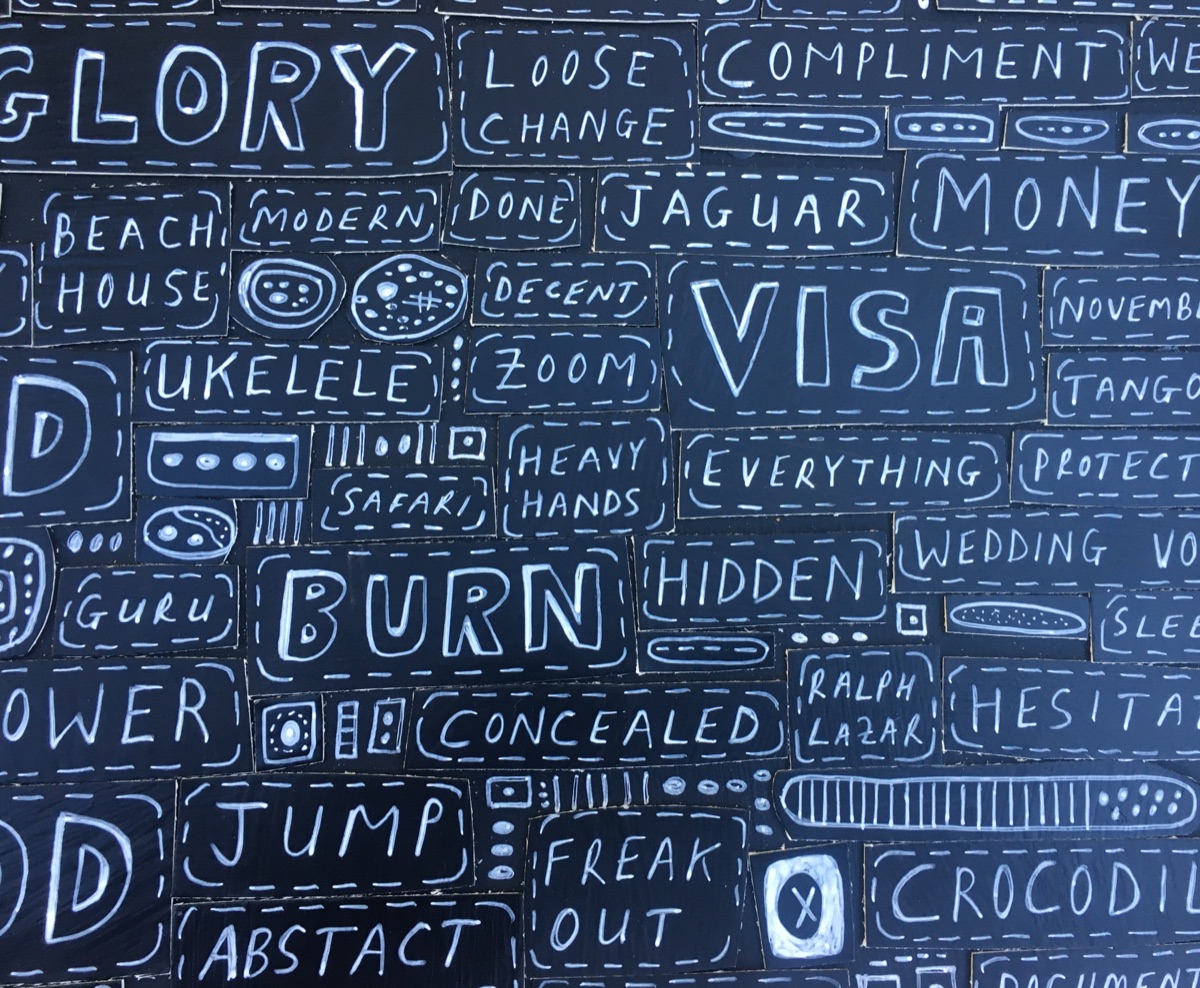 GLORY
LOOSE
CHANGE
COMPLIMENT
WE
BEACH
HOUSE
MODERN
DONE
JAGUAR
MONEY
DECENT
VISA
NOVEMB
UKELELE
ZOOM
TANGO
D
SAFARI
HEAVY
HANDS
EVERYTHING
PROTECT
WEDDING VO
GURU
BURN
HIDDEN
SLEE
OWER
CONCEALED
RALPH
LAZAR
HESITA
JUMP
OD
FREAK
OUT
X
CROCODIL
ABSTACT
DOCUMENT